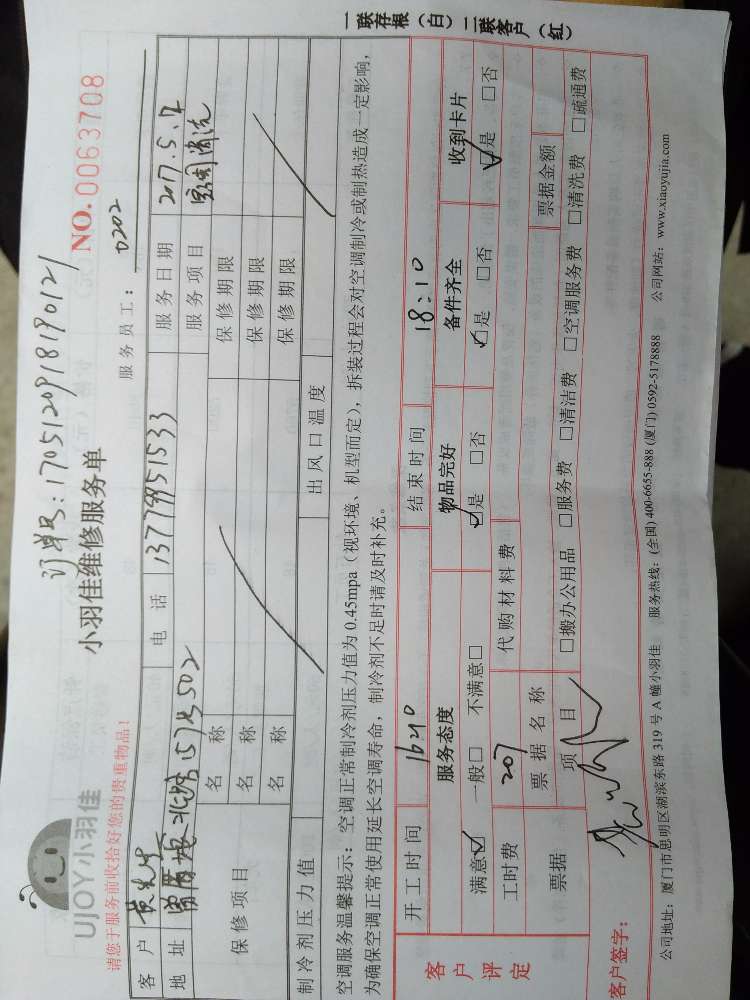 订单号：1705120918190121
UJOY小羽佳
小羽佳维修服务单
NO.0063708
请您于服务前收拾好您的贵重物品！
服务员工： D202
客户 黄先生 电话 13779951533 服务日期 2017.5.12
地址 北 157号502 服务项目 清洗
保修项目 名称 保修期限
名称 保修期限
名称 保修期限
制冷剂压力值 出风口温度
空调服务温馨提示：空调正常制冷剂压力值为 0.45mpa（视环境、机型而定），拆装过程会对空调制冷或制热造成一定影响，
为确保空调正常使用延长空调寿命，制冷剂不足时请及时补充。
客户评定
开工时间 1640 结束时间 18:10
服务态度 物品完好 备件齐全 收到卡片
满意☑ 一般□ 不满意□ ☑是 □否 ☑是 □否 ☑是 □否
工时费 207 代购材料费
票据 票据名称 票据金额
项目 □搬办公用品 □服务费 □清洁费 □空调服务费 □清洗费 □疏通费
客户签字：
公司地址：厦门市思明区湖滨东路 319 号 A 幢小羽佳 服务热线：(全国) 400-6655-888 (厦门) 0592-5178888 公司网站：www.xiaoyujia.com
一联存根（白）二联客户（红）